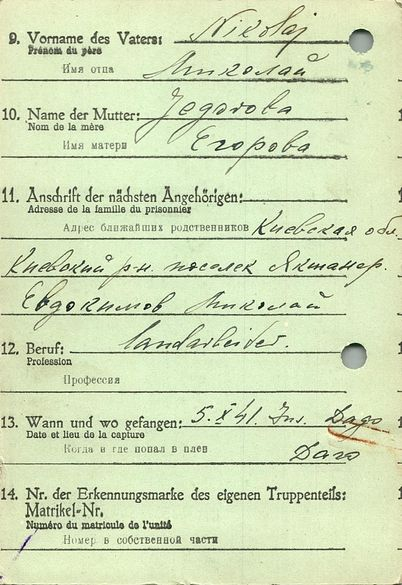 9. Vorname des Vaters: Nikolaj
Prénom du père
Имя отца Николай
10. Name der Mutter: Jegorowa
Nom de la mère
Имя матери Егорова
11. Anschrift der nächsten Angehörigen:
Adresse de la famille du prisonnier
Адрес ближайших родственников Киевская обл.
Киевский р-н. поселек
Евдокимов Николай
12. Beruf: Landarbeiter.
Profession
Профессия
13. Wann und wo gefangen: 5. X 41. Ins. Dago
Date et lieu de la capture
Когда и где попал в плен Даго
14. Nr. der Erkennungsmarke des eigenen Truppenteils:
Matrikel-Nr.
Numéro du matricule de l'unité
Номер в собственной части